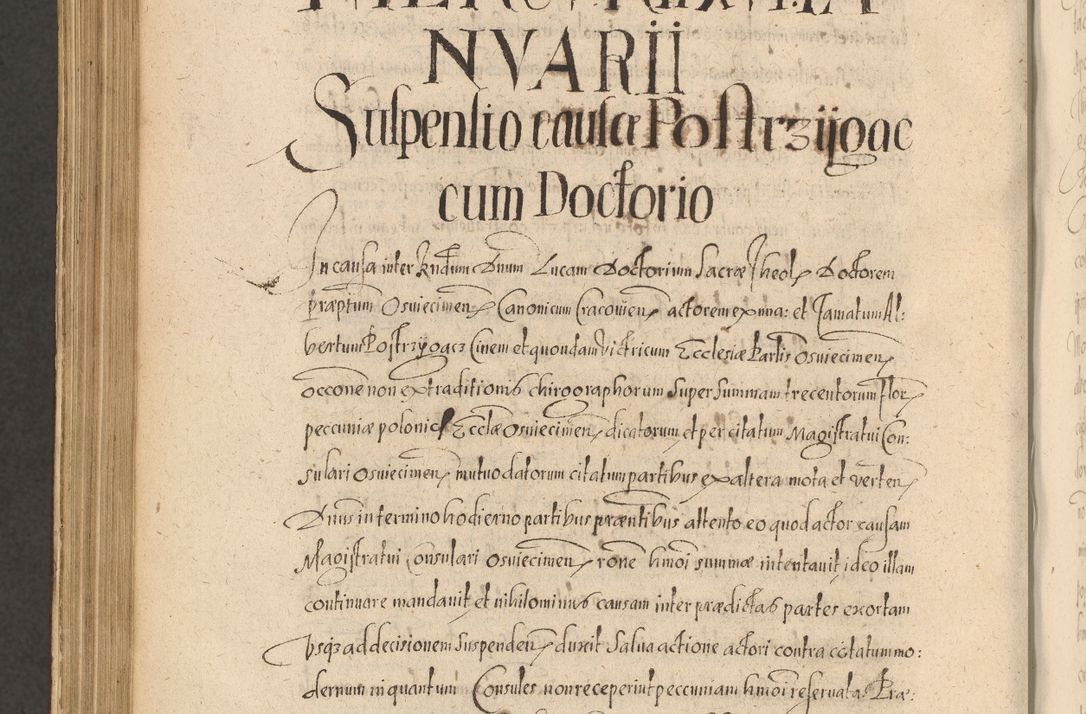 NVARII
Suspensio causæ Postrzÿgac
cum Doctorio
In causa inter Rndum Dnum Lucam Doctorium Sacræ Theol. Doctorem
præptum Osuiecimen. Canonicum Cracouien. actorem ex vna: et famatum Al-
bertum Postrzygacz Ciuem et quondam victricum Ecclesiæ Parlis Osuiecimen.
occone non extraditionis chirographorum super summam trecentorum flor.
peccuniæ polonic. Ecclæ Osuiecimen. dicatorum et per citatum Magistratui Con-
sulari Osuiecimen. mutuo datorum citatum partibus ex altera mota et verten.
Dnus in termino hodierno partibus præntibus attento eo quod actor causam
Magistratui Consulari Osuiecimen. rone hmoi summæ intentauit ideo illam
continuare mandauit et nihilominus causam inter prædictas partes exortam
vsq3 ad decisionem suspenden. duxit salua actione actori contra citatum mo:
dernum in quantum Consules non receperint peccuniam hmoi reseruata. Præ: